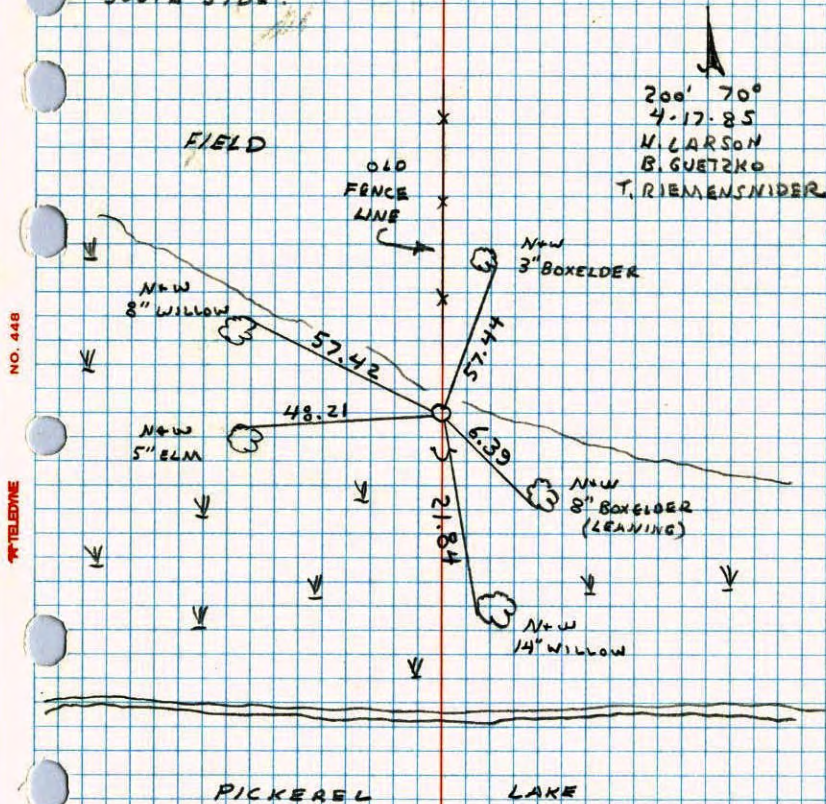 200' 70°
4-17-85
FIELD
N. LARSON
B. GUETZKO
OLD
FENCE
LINE
T. RIEMENSNIDER
N+W
3" BOXELDER
N+W
8" WILLOW
57.42
57.44
48.21
N+W
5" ELM
6.39
N+W
8" BOXELDER
(LEANING)
21.84
N+W
14" WILLOW
PICKEREL LAKE
NO. 448
TELEDYNE